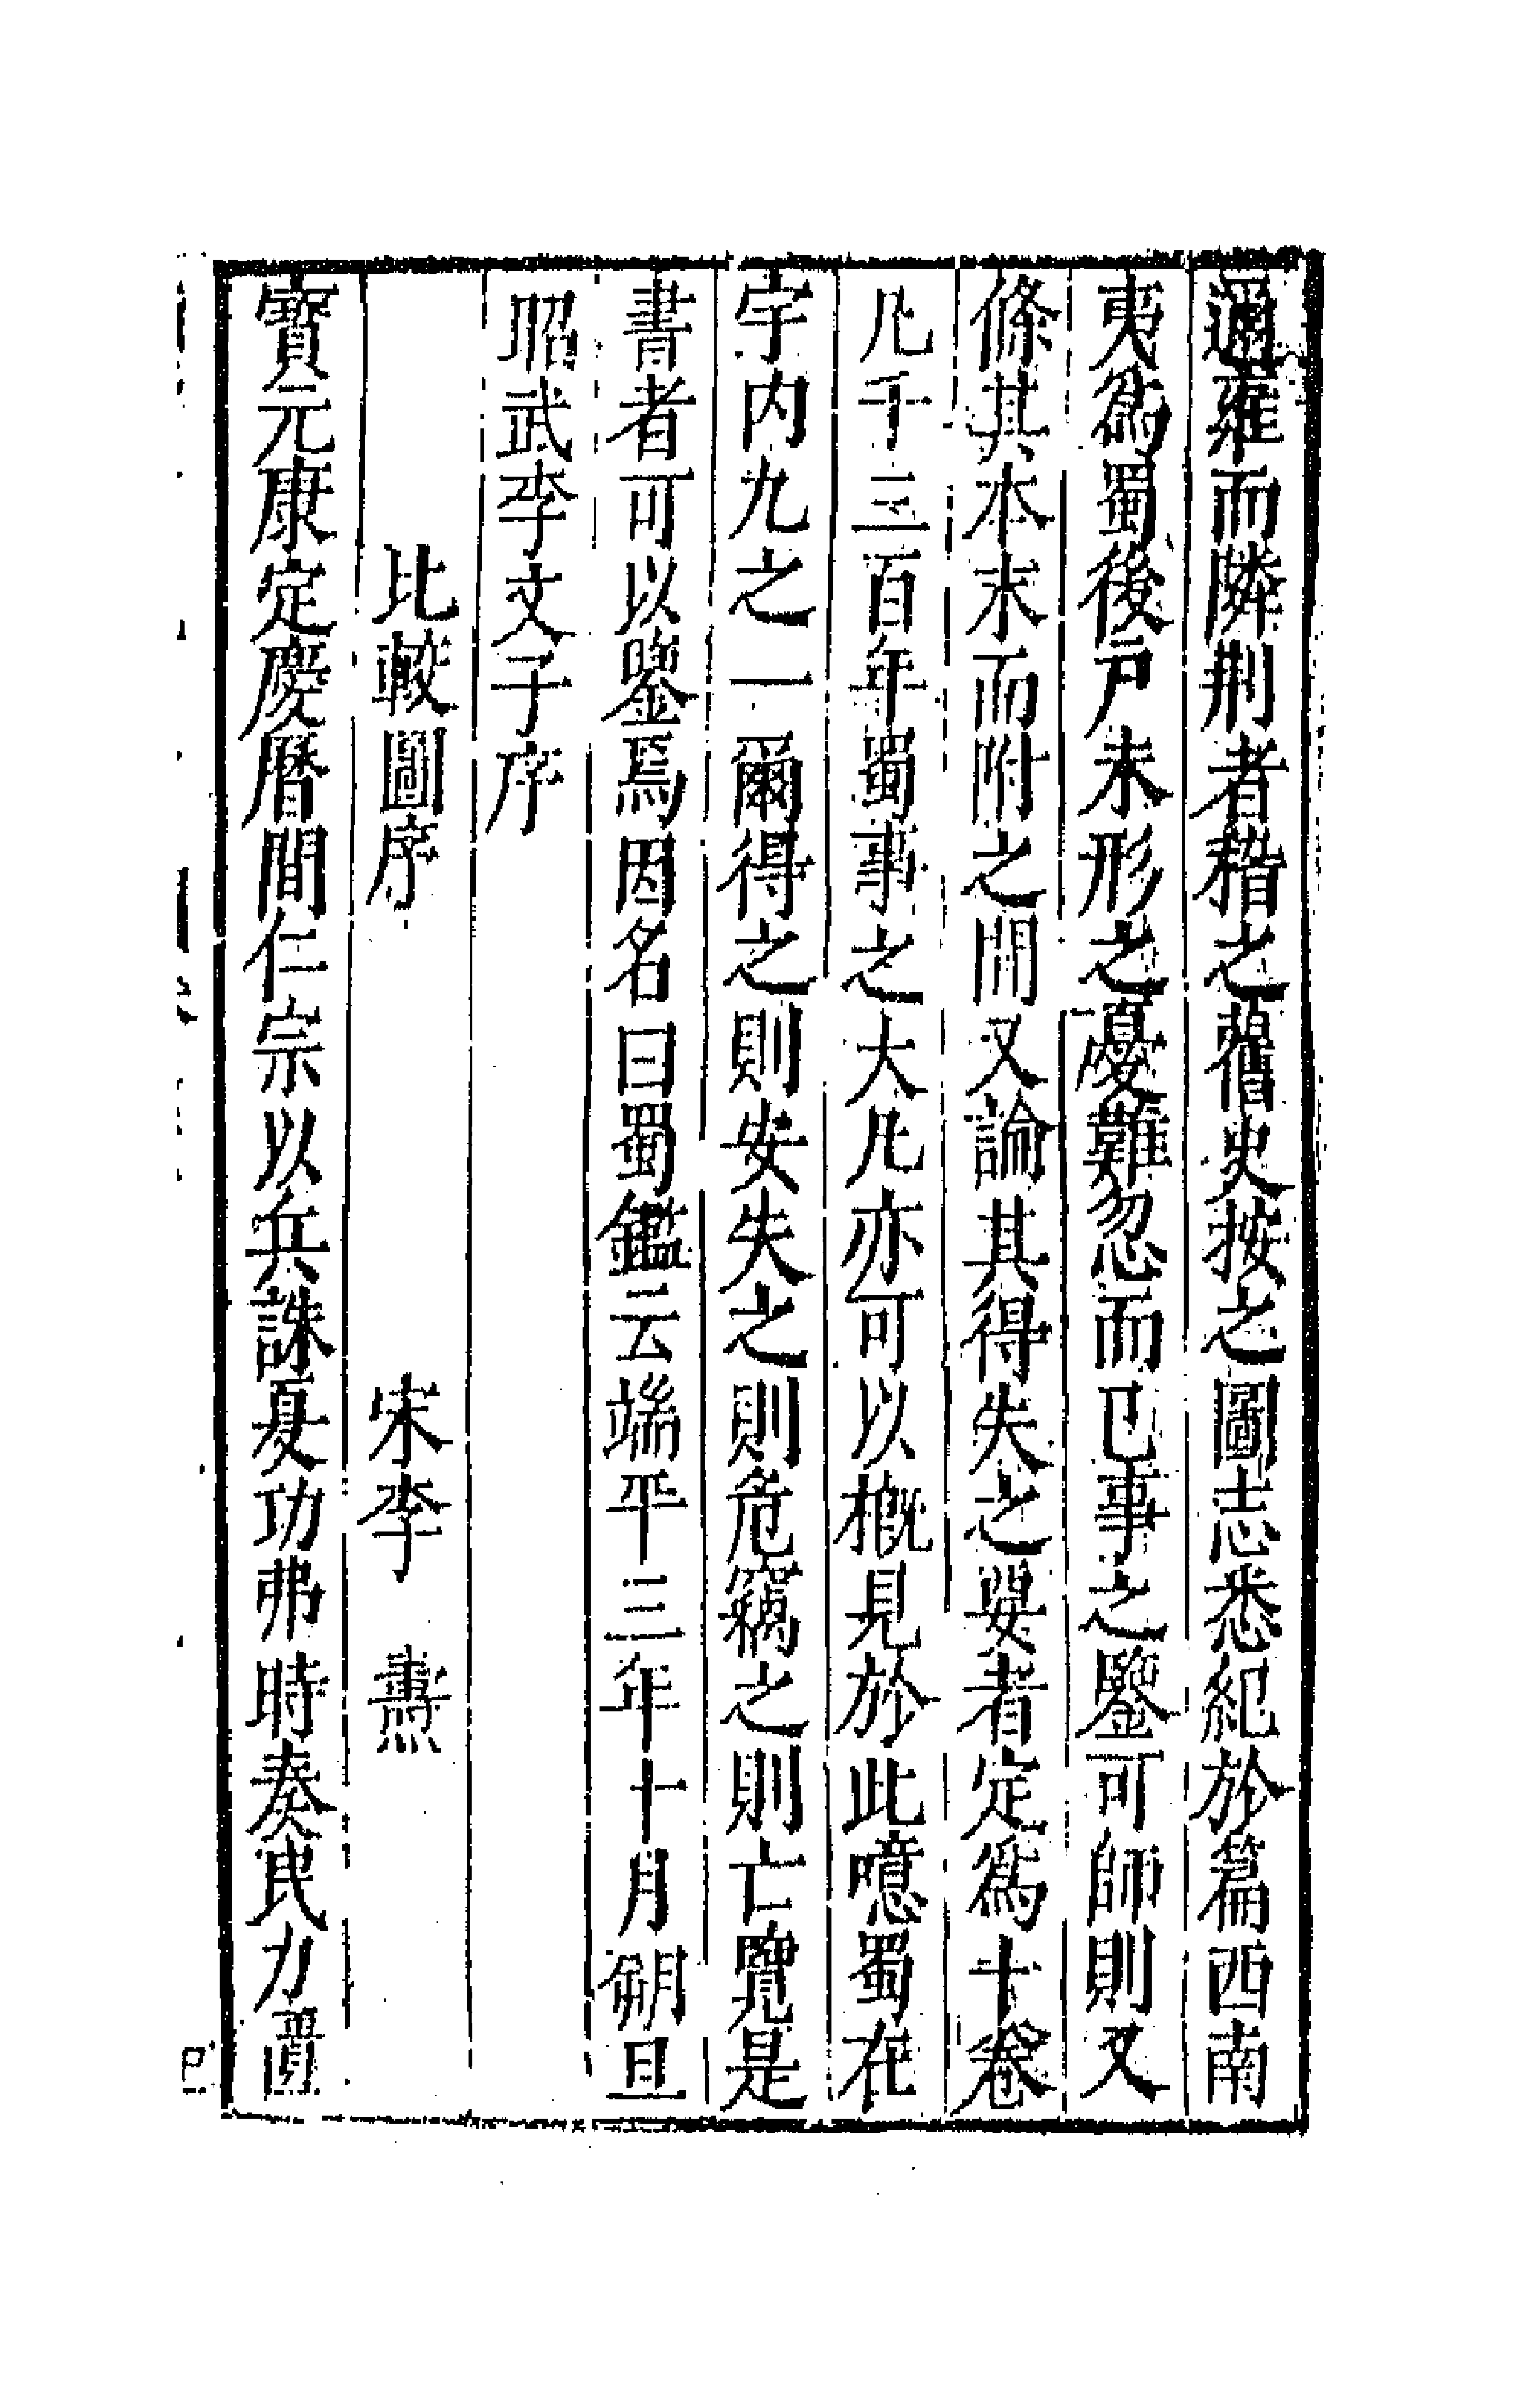 邇雍而隣荆者稽之舊史按之圖志悉紀於篇西南
夷爲蜀後戸未形之憂難忽而已事之鑒可師則又
條其本末而附之間又論其得失之要者定爲十卷
凢千三百年蜀事之大凢亦可以槪見於此噫蜀在
宇内九之一爾得之則安失之則危竊之則亡覽是
書者可以鑒焉因名曰蜀鑑云端平三年十月朔旦
昭武李文子序
比較圖序 宋李燾
寶元康定慶曆間仁宗以兵誅夏功弗時奏民力匱